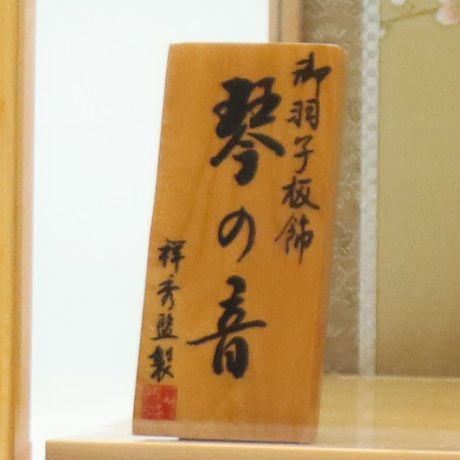 御羽子板飾
琴の音
祥秀監製